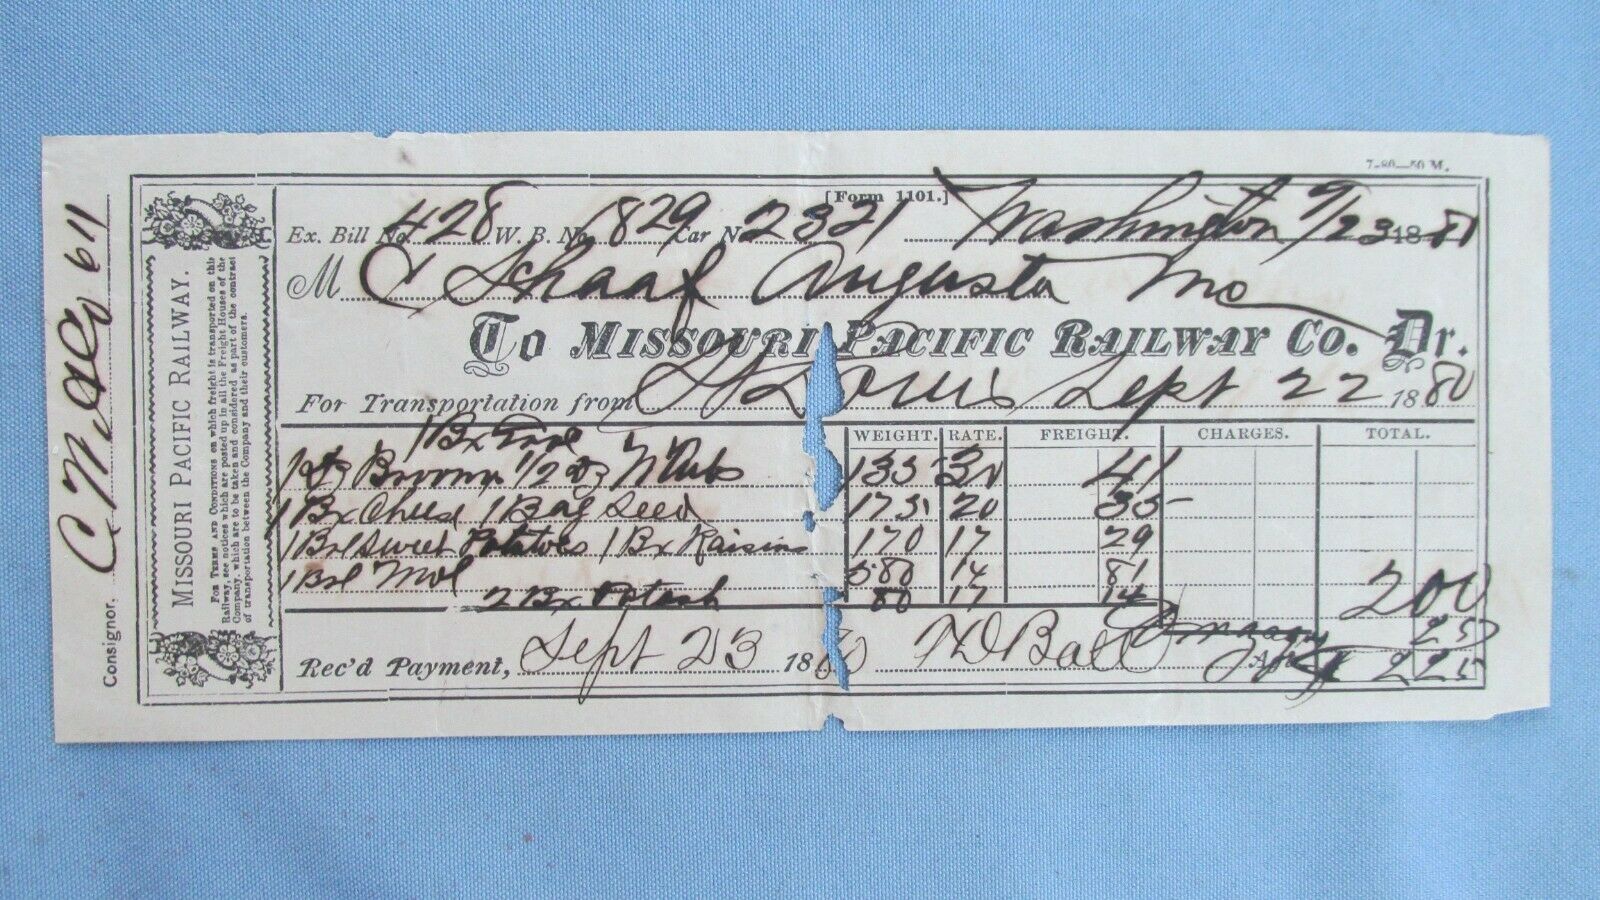 7-80—50 M.
[Form 1101.]
Ex. Bill No. 428 W. B. No. 1829 Car No. 2321 Washington 9/23 1880
M C Schaaf Augusta Mo
To Missouri Pacific Railway Co. Dr.
For Transportation from St Louis Sept 22 1880
WEIGHT. RATE. FREIGHT. CHARGES. TOTAL.
1 Bx
1 Dz Brooms 1/2 Dz 133 30 41
1 Bx Cheese 1 Bag Seed 175 20 35
1 Brl Sweet Potatoes 1 Bx Raisins 170 17 29
1 Brl Mol 580 14 81
2 Bx Potash 80 17 14 200
25
Rec'd Payment, Sept 23 1880 H D Ball Agt 225
Consignor.
MISSOURI PACIFIC RAILWAY.
For Terms and Conditions on which freight is transported on this
Railway, see notices which are posted up in all the Freight Houses of the
Company, which are to be taken and considered as part of the contract
of transportation between the Company and their customers.